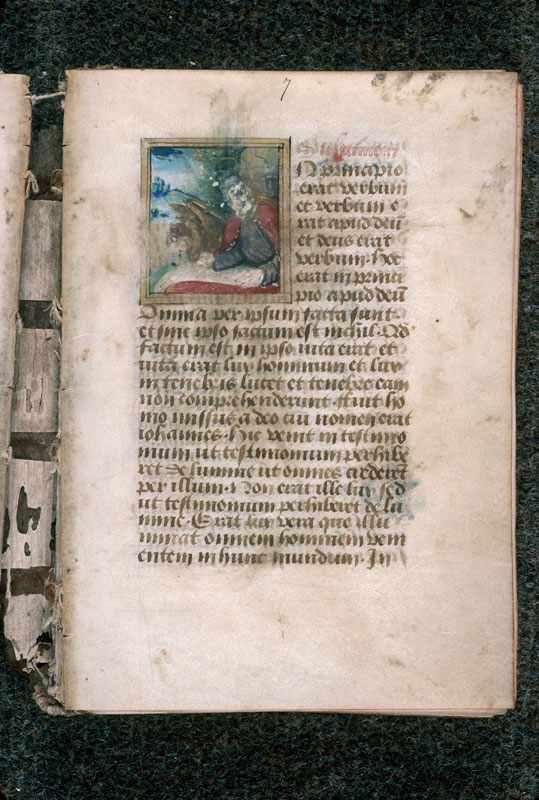 7
N principio
erat verbum
et verbum e
rat apud deū
et deus erat
verbum. Hoc
erat in princi
pio apud deū
Omnia per ipsum facta sunt.
et sine ipso factum est nichil. Qd
factum est in ipso vita erat et
vita erat lux hominum et lux
in tenebris lucet et tenebre eam
non comprehenderunt. ffuit ho
mo missus a deo cui nomen erat
iohannes. Hic venit in testimo
nium ut testimonium perhibe
ret de lumine ut omnes crederēt
per illum. Non erat ille lux sed
ut testimonium perhiberet de lu
mine. Erat lux vera que illu
minat omnem hominem veni
entem in hunc mundum. In